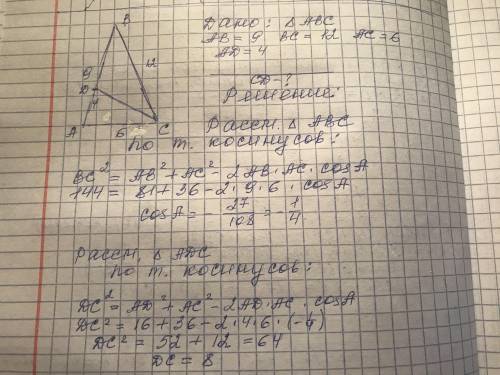 B
Дано: △ABC
AB = 9 BC = 12 AC = 6
AD = 4
9
12
D
4
CD - ?
Решение:
A
6
C
Рассм. △ ABC
по т. косинусов:
BC² = AB² + AC² - 2AB·AC·cosA
144 = 81 + 36 - 2·9·6·cosA
cosA = - 27/108 = - 1/4
Рассм. △ ADC
по т. косинусов:
DC² = AD² + AC² - 2AD·AC·cosA
DC² = 16 + 36 - 2·4·6·(-1/4)
DC² = 52 + 12 = 64
DC = 8